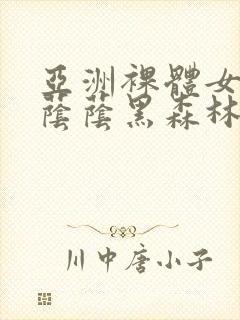 亞洲裸體女
蔭蔭黑森林
川中唐小子